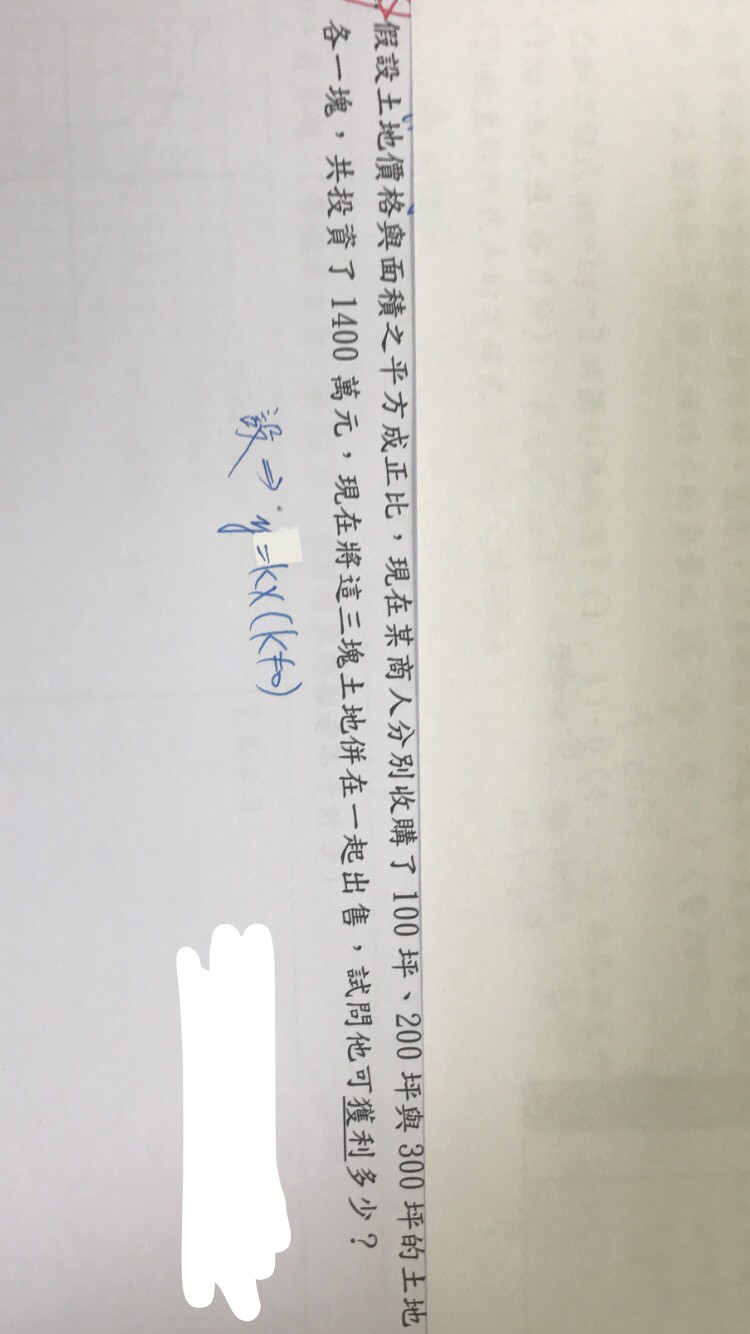 假設土地價格與面積之平方成正比，現在某商人分別收購了100坪、200坪與300坪的土地
各一塊，共投資了1400萬元，現在將這三塊土地併在一起出售，試問他可獲利多少？
設⇒y=kx(k≠0)